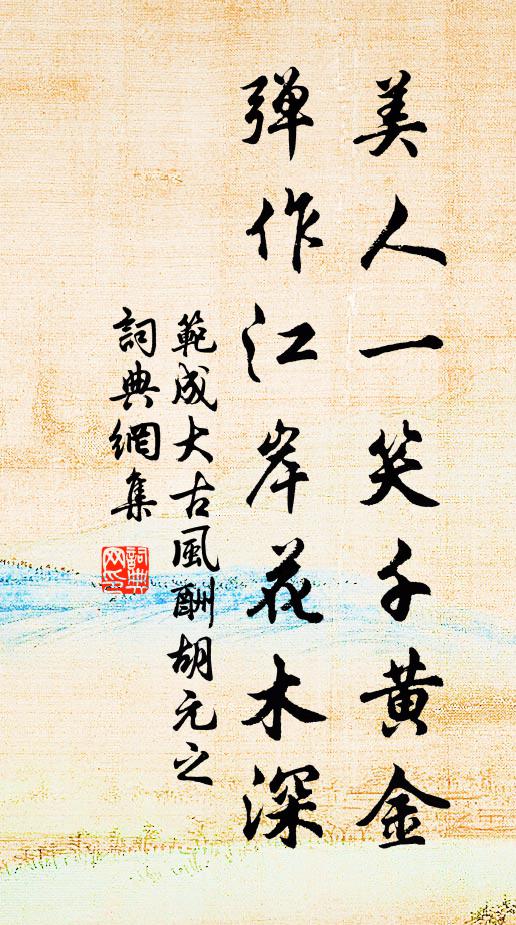 美人一笑千黄金
弾作江岸花木深
範成大古風酬胡元之
詞典網集
詞典网